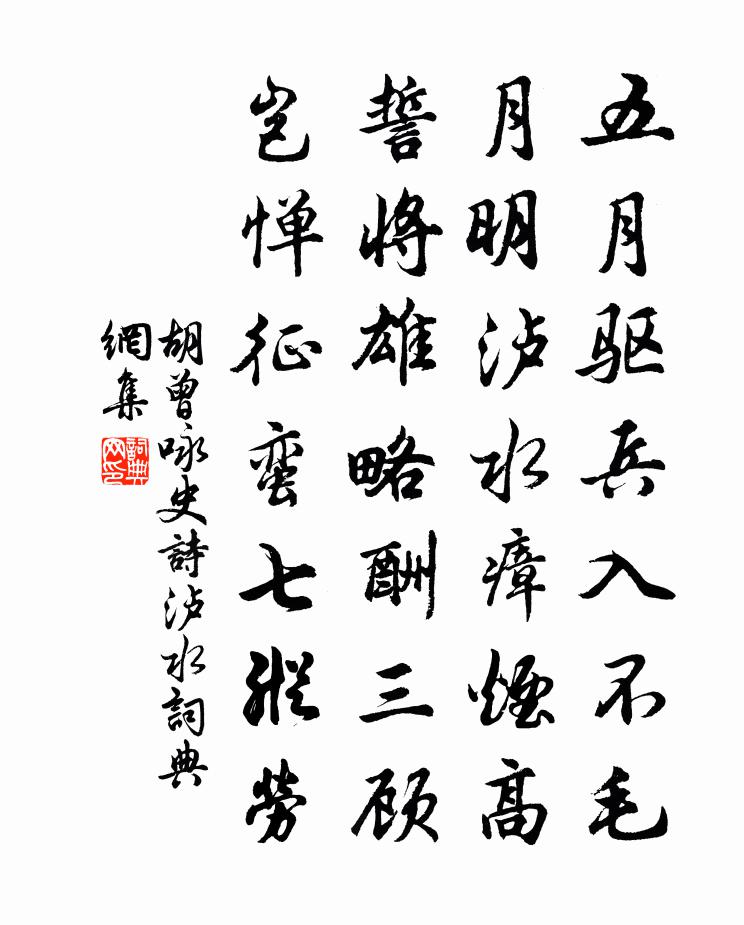 五月驱兵入不毛
月明泸水瘴煙高
誓將雄略酬三顾
岂惮征蛮七縱勞
胡曾咏史詩泸水詞典
網集
詞典
网印